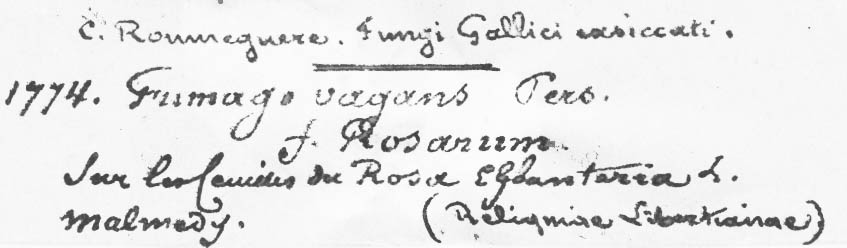 C. Roumeguere. Fungi Gallici exsiccati.
1774. Fumago vagans Pers.
f. Rosarum.
Sur les feuilles du Rosa Eglanteria L.
Malmedy. (Reliquiae Libertianae)